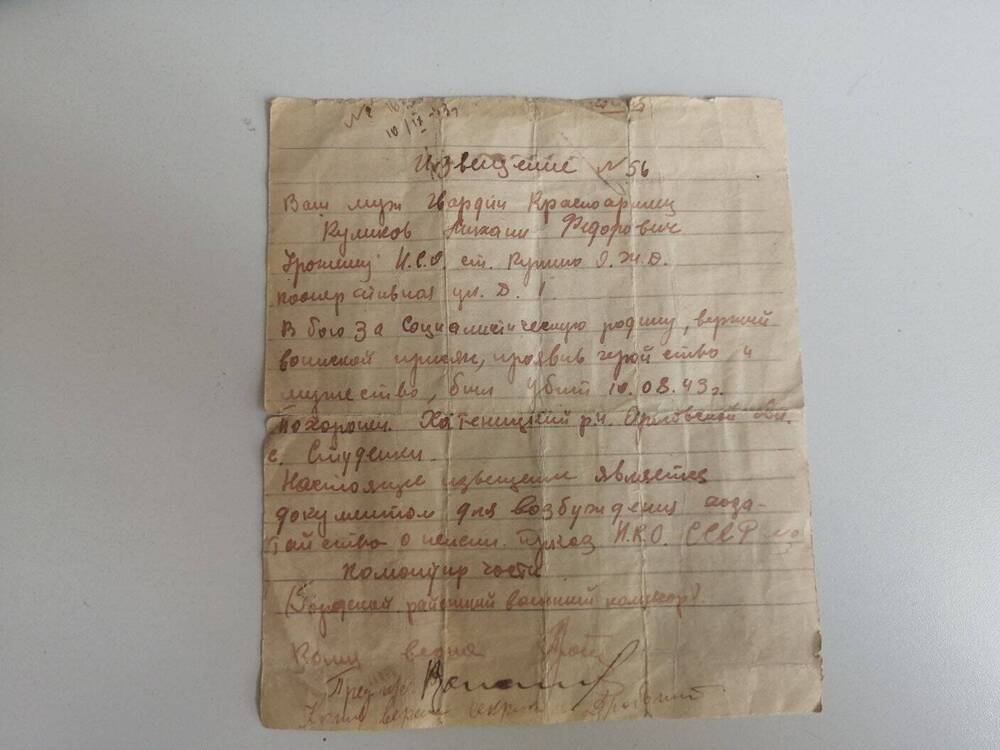 №
10/IX-43г
Извещение №56
Ваш муж Гвардии Красноармиец
Куликов Михаил Федорович
Уроженец Н.С.О. ст. Купино О.Ж.Д.
Кооперативная ул. Д. 1.
В бою За Социалистическую родину, верный
воинской присяге, проявив геройство и
мужество, был убит 10.08.43г.
Похоронен. Хатеницкий р-н. Орловской обл.
с. Студенки.
Настоящие извещение является
документом для возбуждения хода-
тайство о пенсии. приказ Н.К.О. СССР №
Командир части
(Городской районный военный комисар).
Копия верна
Пред
Копия верна секрет